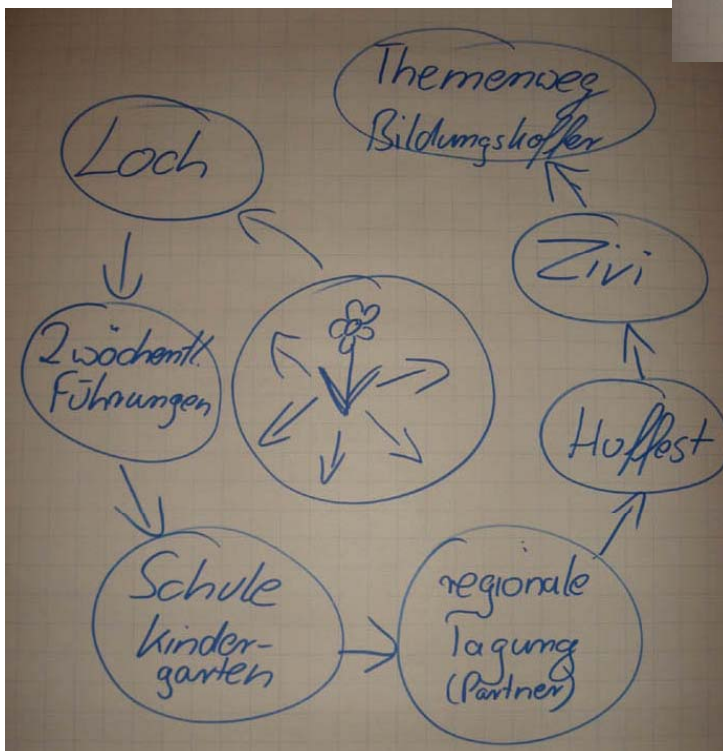 Loch
2 wöchentl.
Führungen
Schule
Kinder-
garten
regionale
Tagung
(Partner)
Hoffest
Zivi
Themenweg
Bildungskoffer